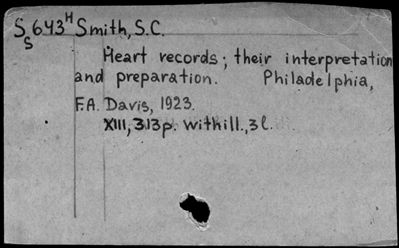 S₅643ᴴ Smith, S.C.
Heart records; their interpretation
and preparation. Philadelphia,
F.A. Davis, 1923.
XIII, 313p. with ill., 3 l.